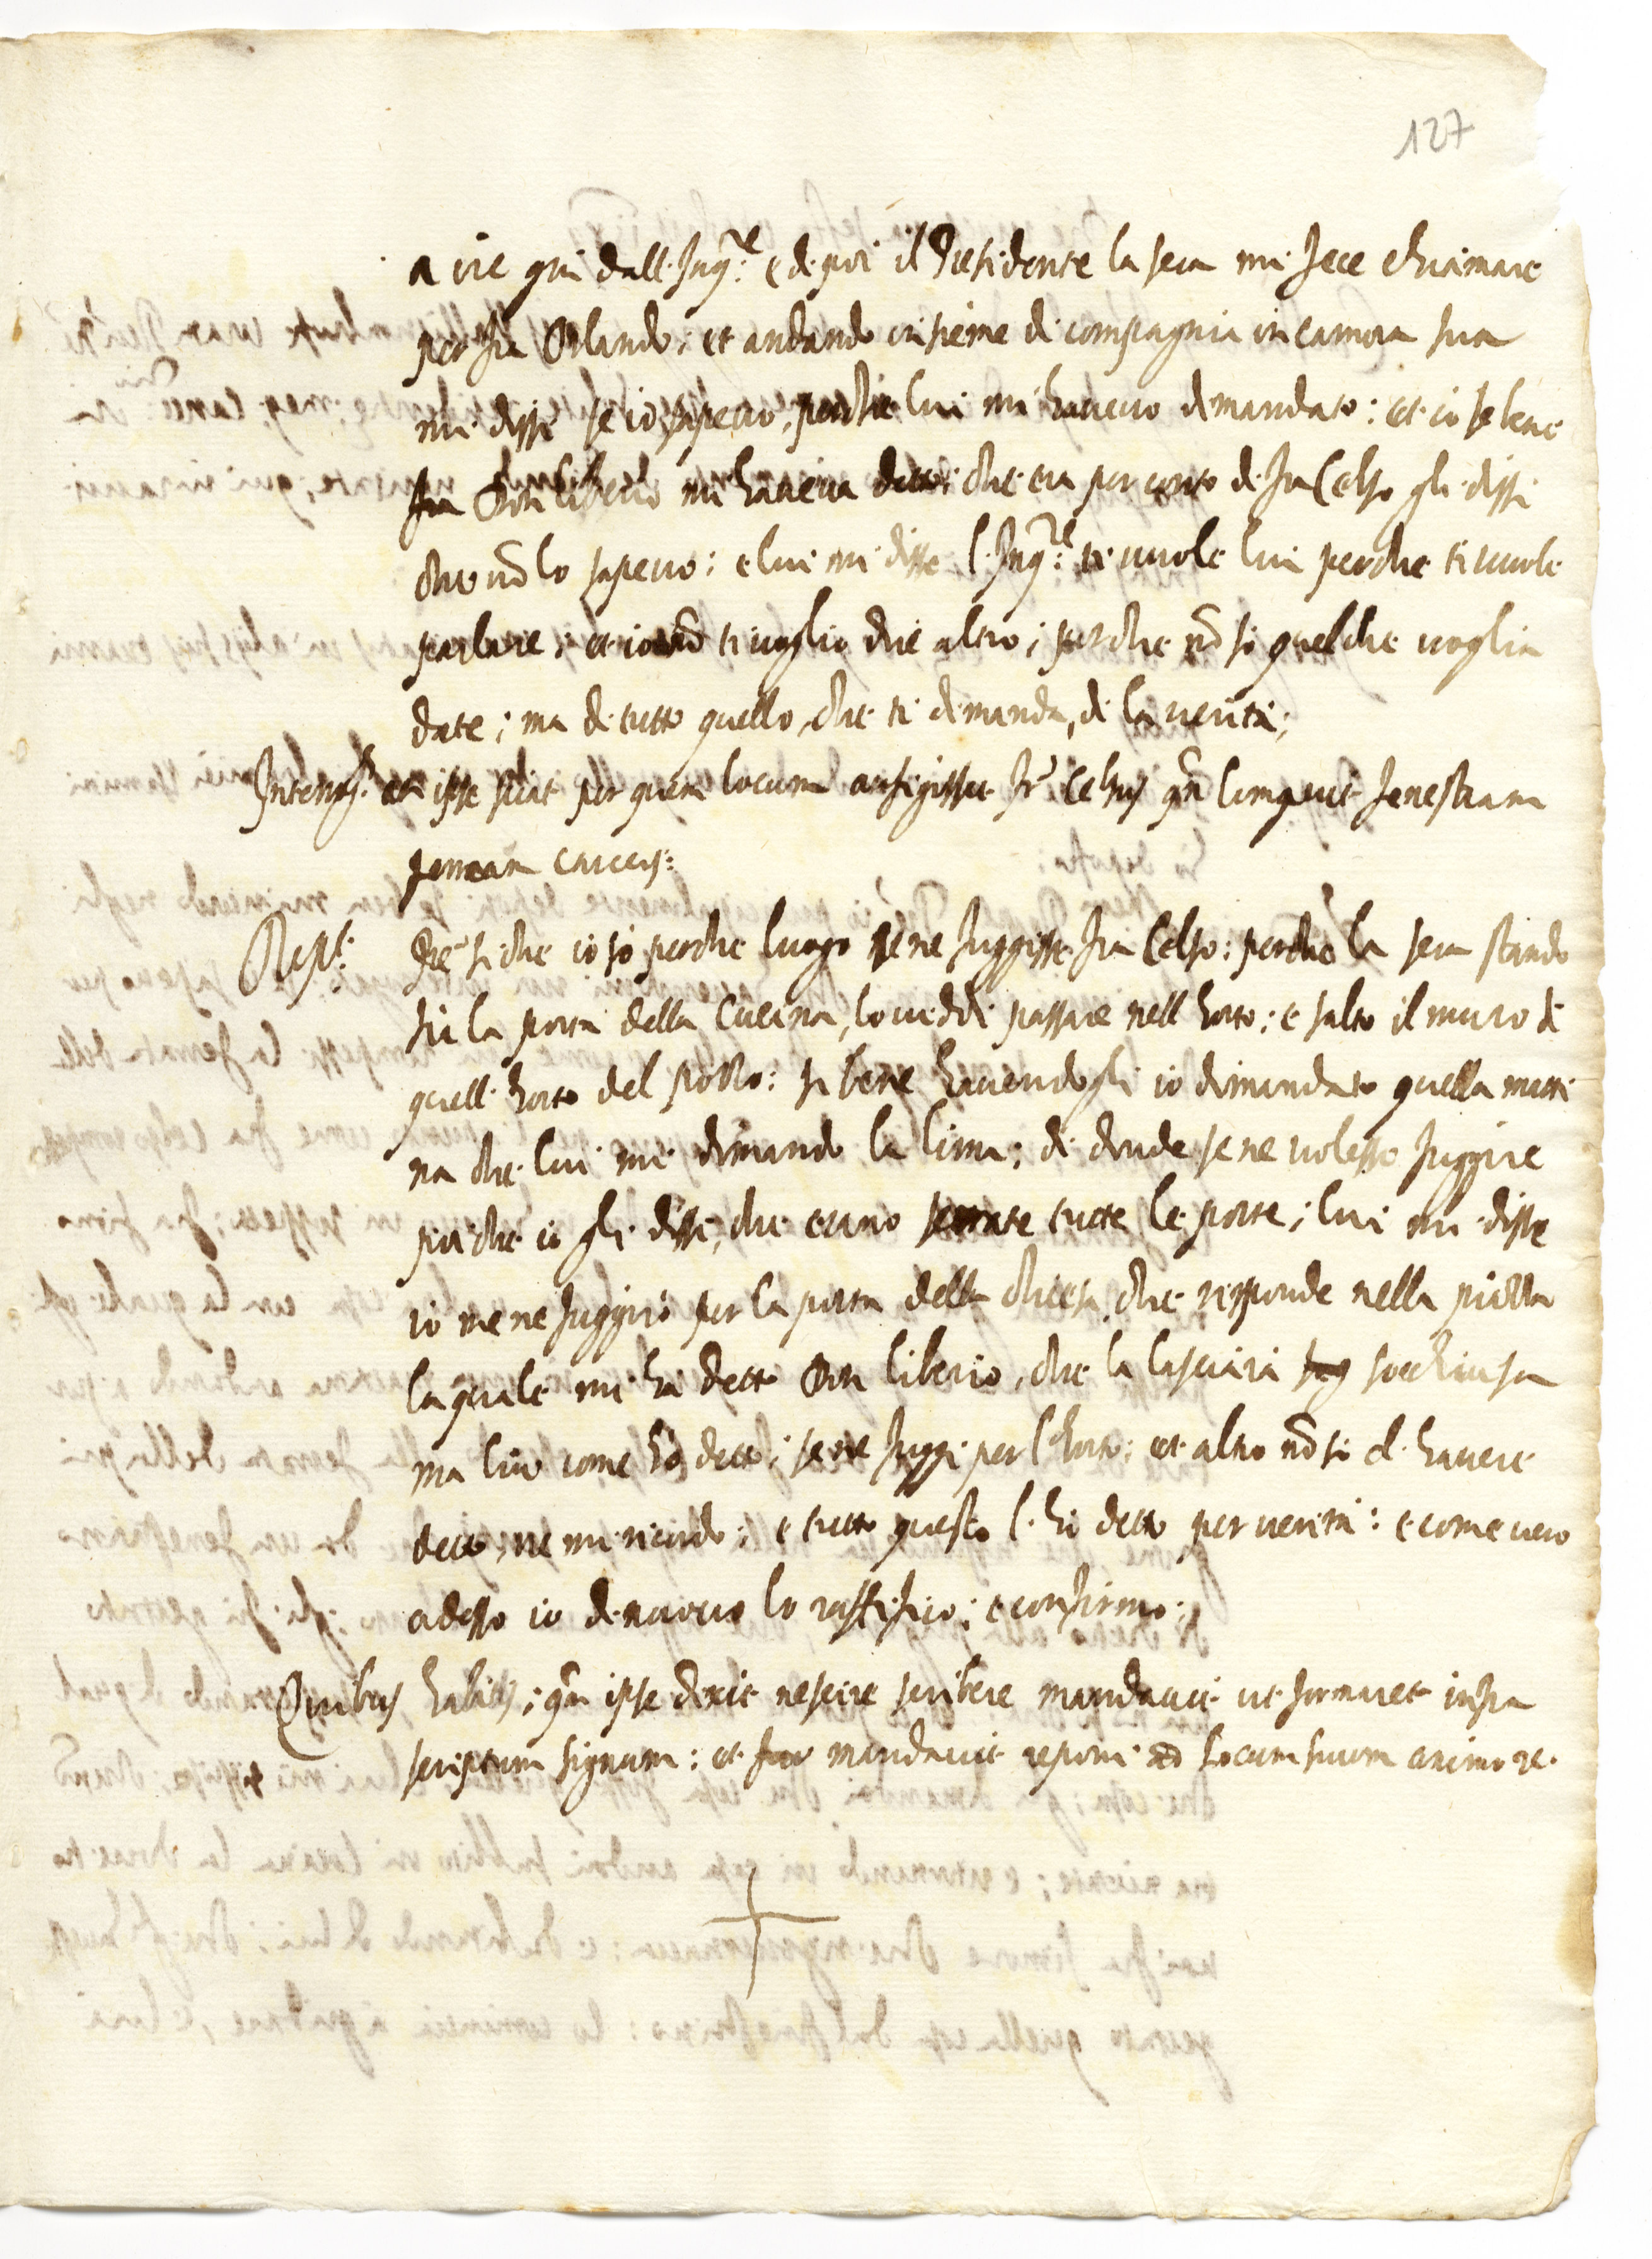 127
a ire qui dall'Inq.re e di poi il Presidente la sera mi fece chiamare
per fra Orlando; et andando insieme di compagnia in camera sua
mi disse se io sapevo, perche lui mi havevo dimandato: et io se bene
fra Don Liberio mi haveva detto; che era per conto di fra Celso gli dissi
che nõ lo sapevo; e lui mi disse l'Inq.re ti vuole lui perche ti vuole
parlare; et io nõ ti voglio dire altro; perche nõ so quel che voglia
da te; ma di tutto quello, che ti dimanda, di la verità;
Interrog.s an ipse sciat per quem locum aufugisset fr. Celsus qñ limavit fenestram
ferream carceris:
Resp.t Pre si che io so perche luogo se ne fuggisse fra Celso: perche la sera stando
su la porta della Cucina, lo viddi passare nell'horto; e salto il muro di
quell'horto del pozzo: se bene havendogli io dimandato quella matti
na che lui mi dimando la lima; di donde se ne volesse fuggire
poi che io gli dissi, che erano serrate tutte le porte; lui mi disse
io me ne fuggirò per la porta della chiesa, che risponde nella piazza
la quale mi ha detto Don Liberio, che la lasciarà socchiusa
ma lui come ho detto; se ne fuggi per l'horto; et altro nõ so d'havere
detto, ne mi ricordo; e tutto questo l'ho detto per verità: e come vero
adesso io di nuovo lo ratifico; e confirmo;
Quibus habitis; qñ ipse dixit nescire scribere mandavit ut formaret infra
scriptum signum: et mandavit reponi ad locum suum animo re.